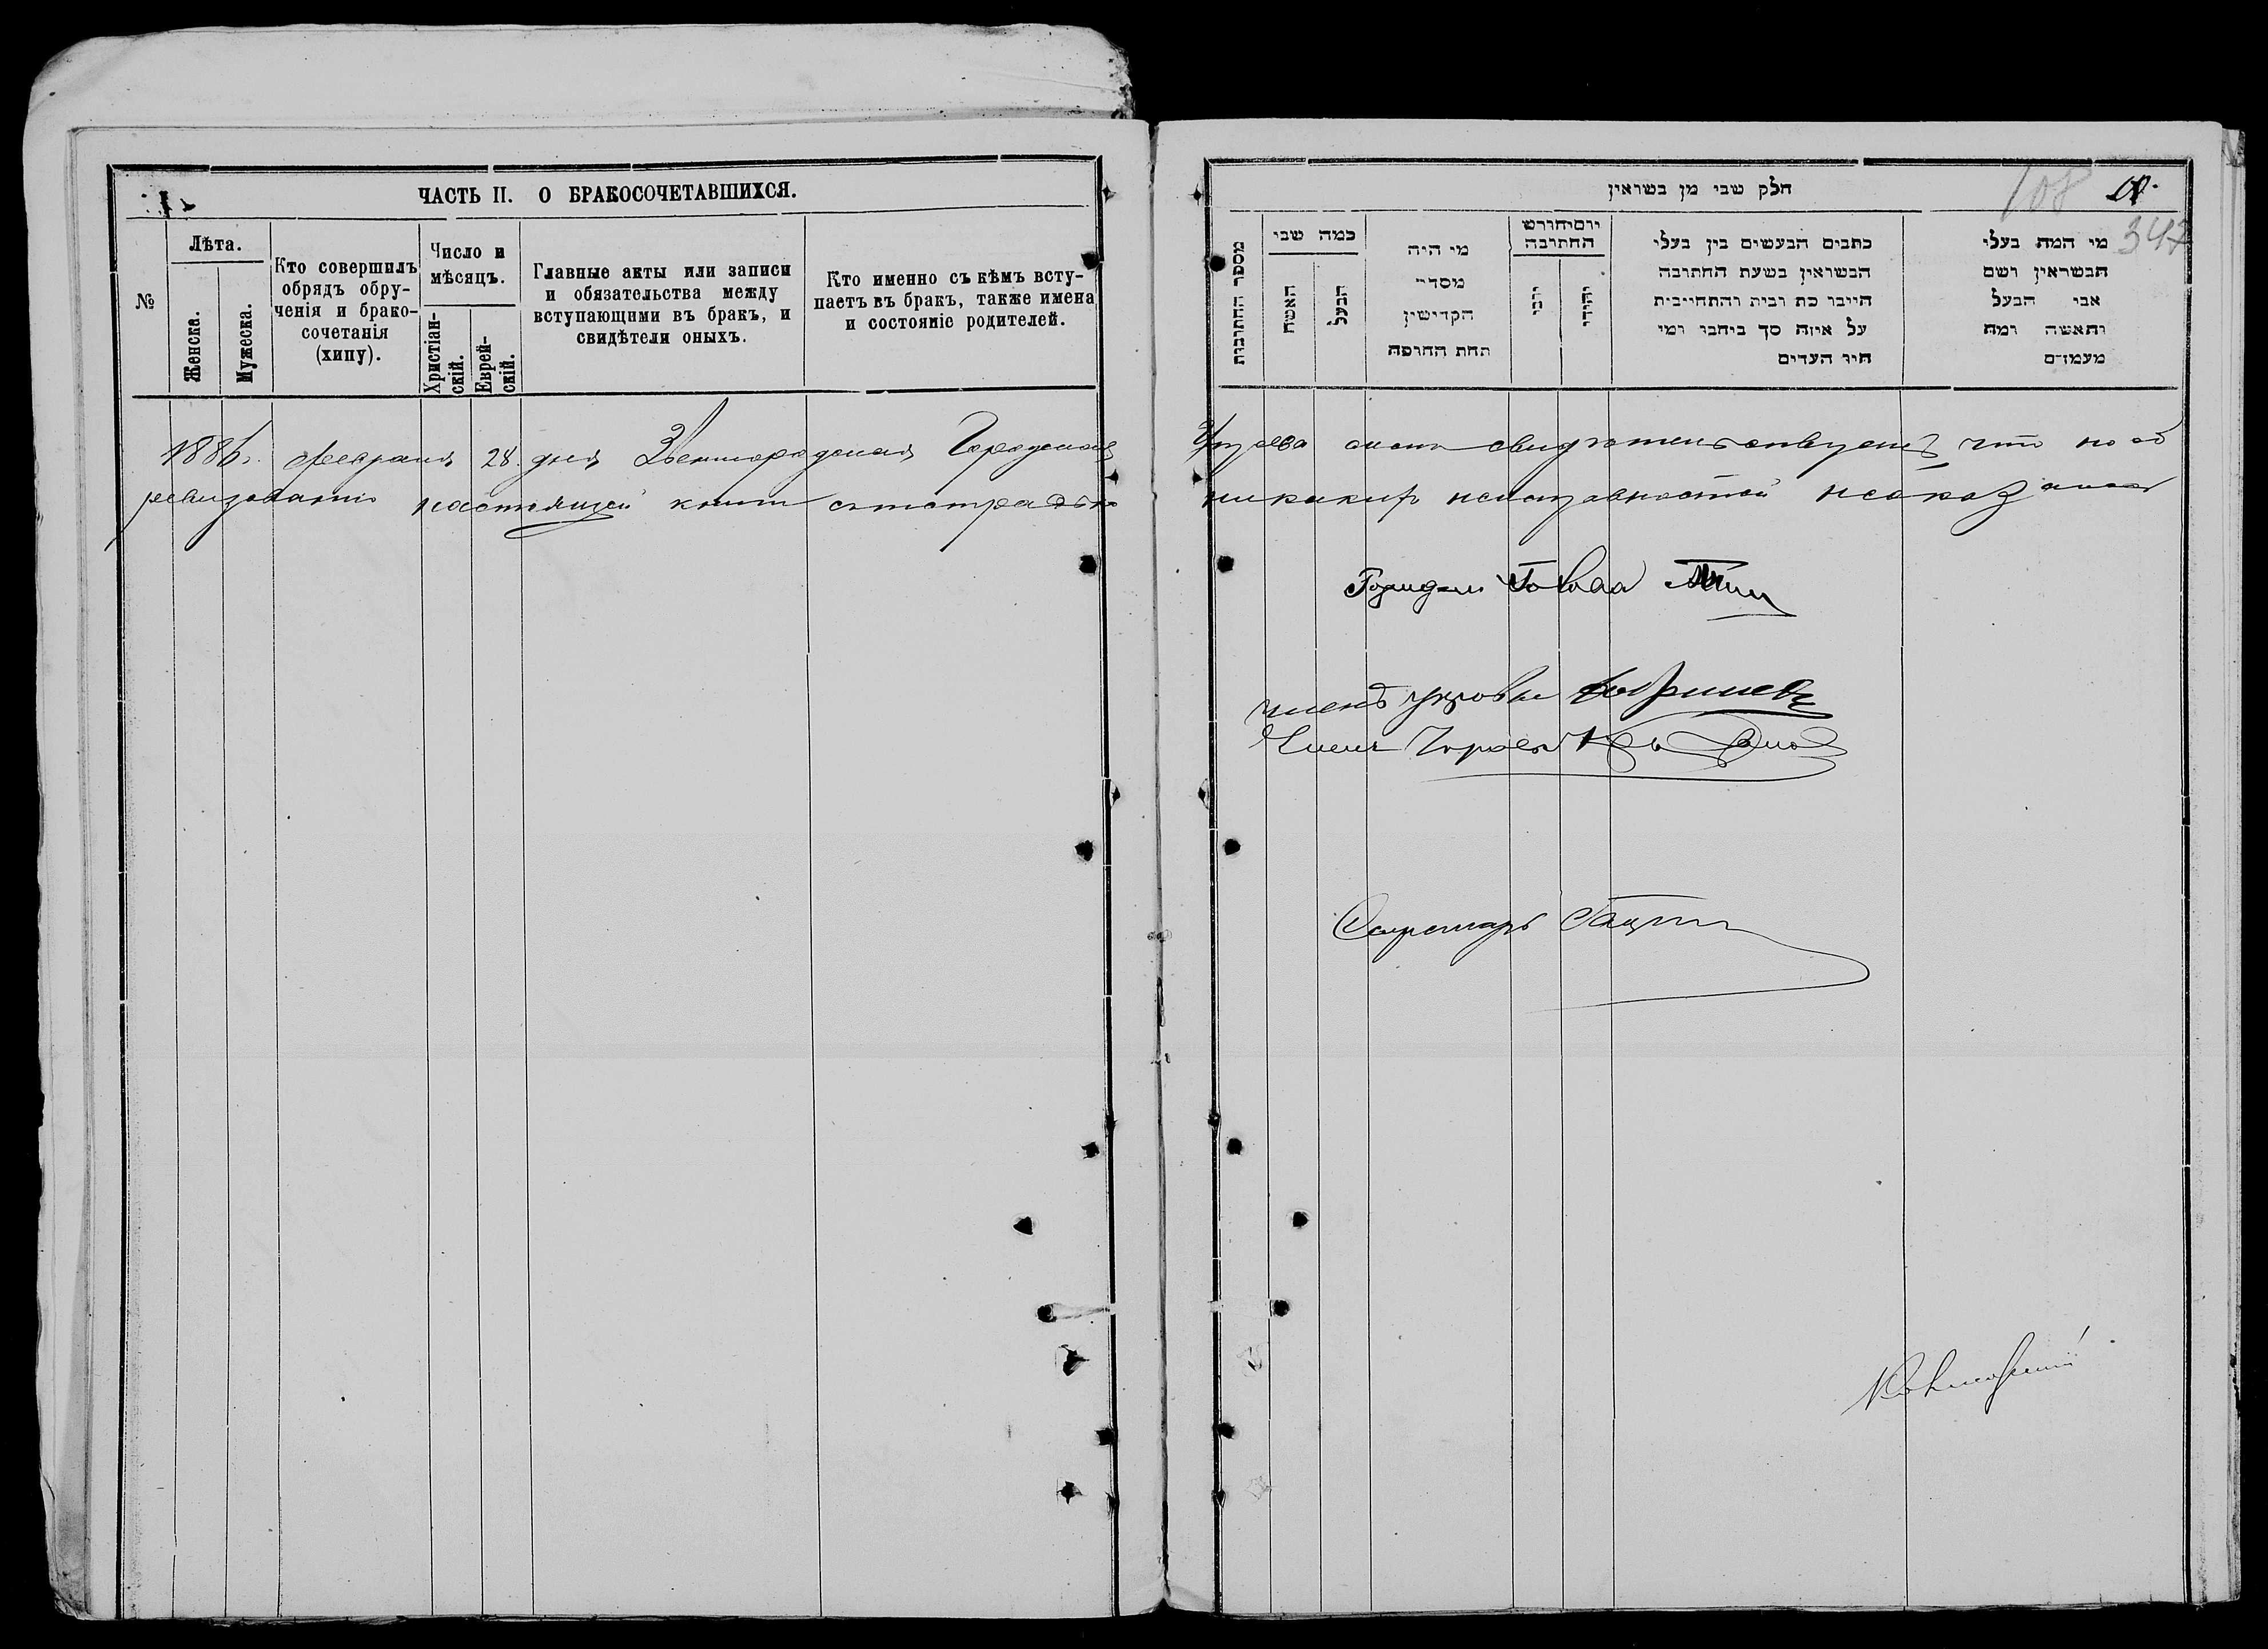 ЧАСТЬ II. О БРАКОСОЧЕТАВШИХСЯ.
№
Лѣта.
Женска.
Мужеска.
Кто совершилъ
обрядъ обру-
ченія и брако-
сочетанія
(хипу).
Число и
мѣсяцъ.
Христіан-
скій.
Еврей-
скій.
Главные акты или записи
и обязательства между
вступающими въ бракъ, и
свидѣтели оныхъ.
Кто именно съ кѣмъ всту-
паетъ въ бракъ, также имена
и состояніе родителей.
1886 г. Февраля 28 дня Звенигородская Городская
ревизованіи настоящей книги
חלק שני מן נשואין
108
347
מספר החתונות
כמה שני
האשה
הבעל
מי היה
מסדר
הקדישין
תחת החופה
יום וחודש
החתונה
יוני
יהודי
כתבים הנעשים בין בעלי
הנשואין בשעת החתונה
היינו כת ובית והתחייבות
על איזה סך ביתנו ומי
היו העדים
מי המה בעלי
הנשואין ושם
אבי הבעל
והאשה ומה
מעמדם
Управа симъ свидѣтельствуетъ что по
никакихъ неисправностей неоказалось
Голова
Членъ управы
Членъ Управы
Секретарь